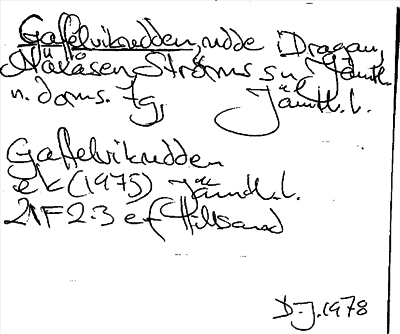 Gaffelvikudden, udde i Dragan,
Nälåsen, Ströms sn, Jämtl.
n. doms. tg, Jämtl. l.
Gaffelvikudden
ek (1975) Jämtl. l.
21F 2-3 ef Hillsand
D-J. 1978